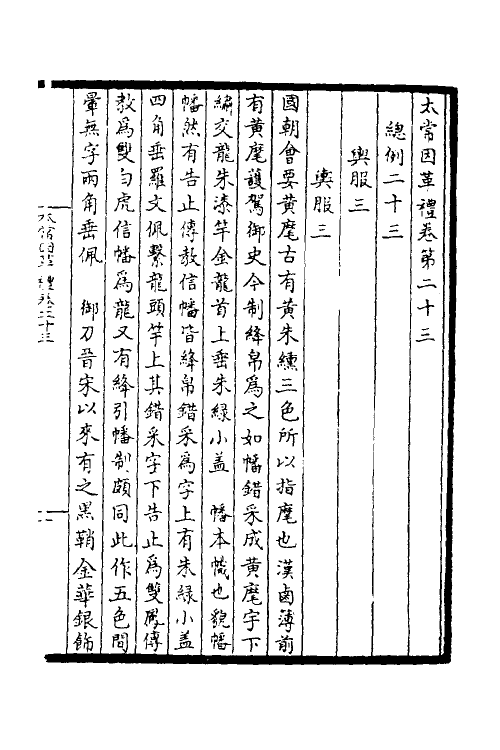 太常因革禮卷第二十三
總例二十三
輿服三
輿服三
國朝會要黃麾古有黃朱纁三色所以指麾也漢鹵薄前
有黃麾護駕御史今制絳帛爲之如幡錯采成黃麾字下
繡交龍朱漆竿金龍首上垂朱緑小蓋　幡本幟也貌幡
幡然有告止傳教信幡皆絳帛錯采爲字上有朱緑小蓋
四角垂羅文佩繫龍頭竿上其錯采字下告止爲雙鳳傳
教爲雙白虎信幡爲龍又有絳引幡制頗同此作五色間
暈無字兩角垂佩　御刀晉宋以來有之黑鞘金華銀飾
太常因革禮卷二十三